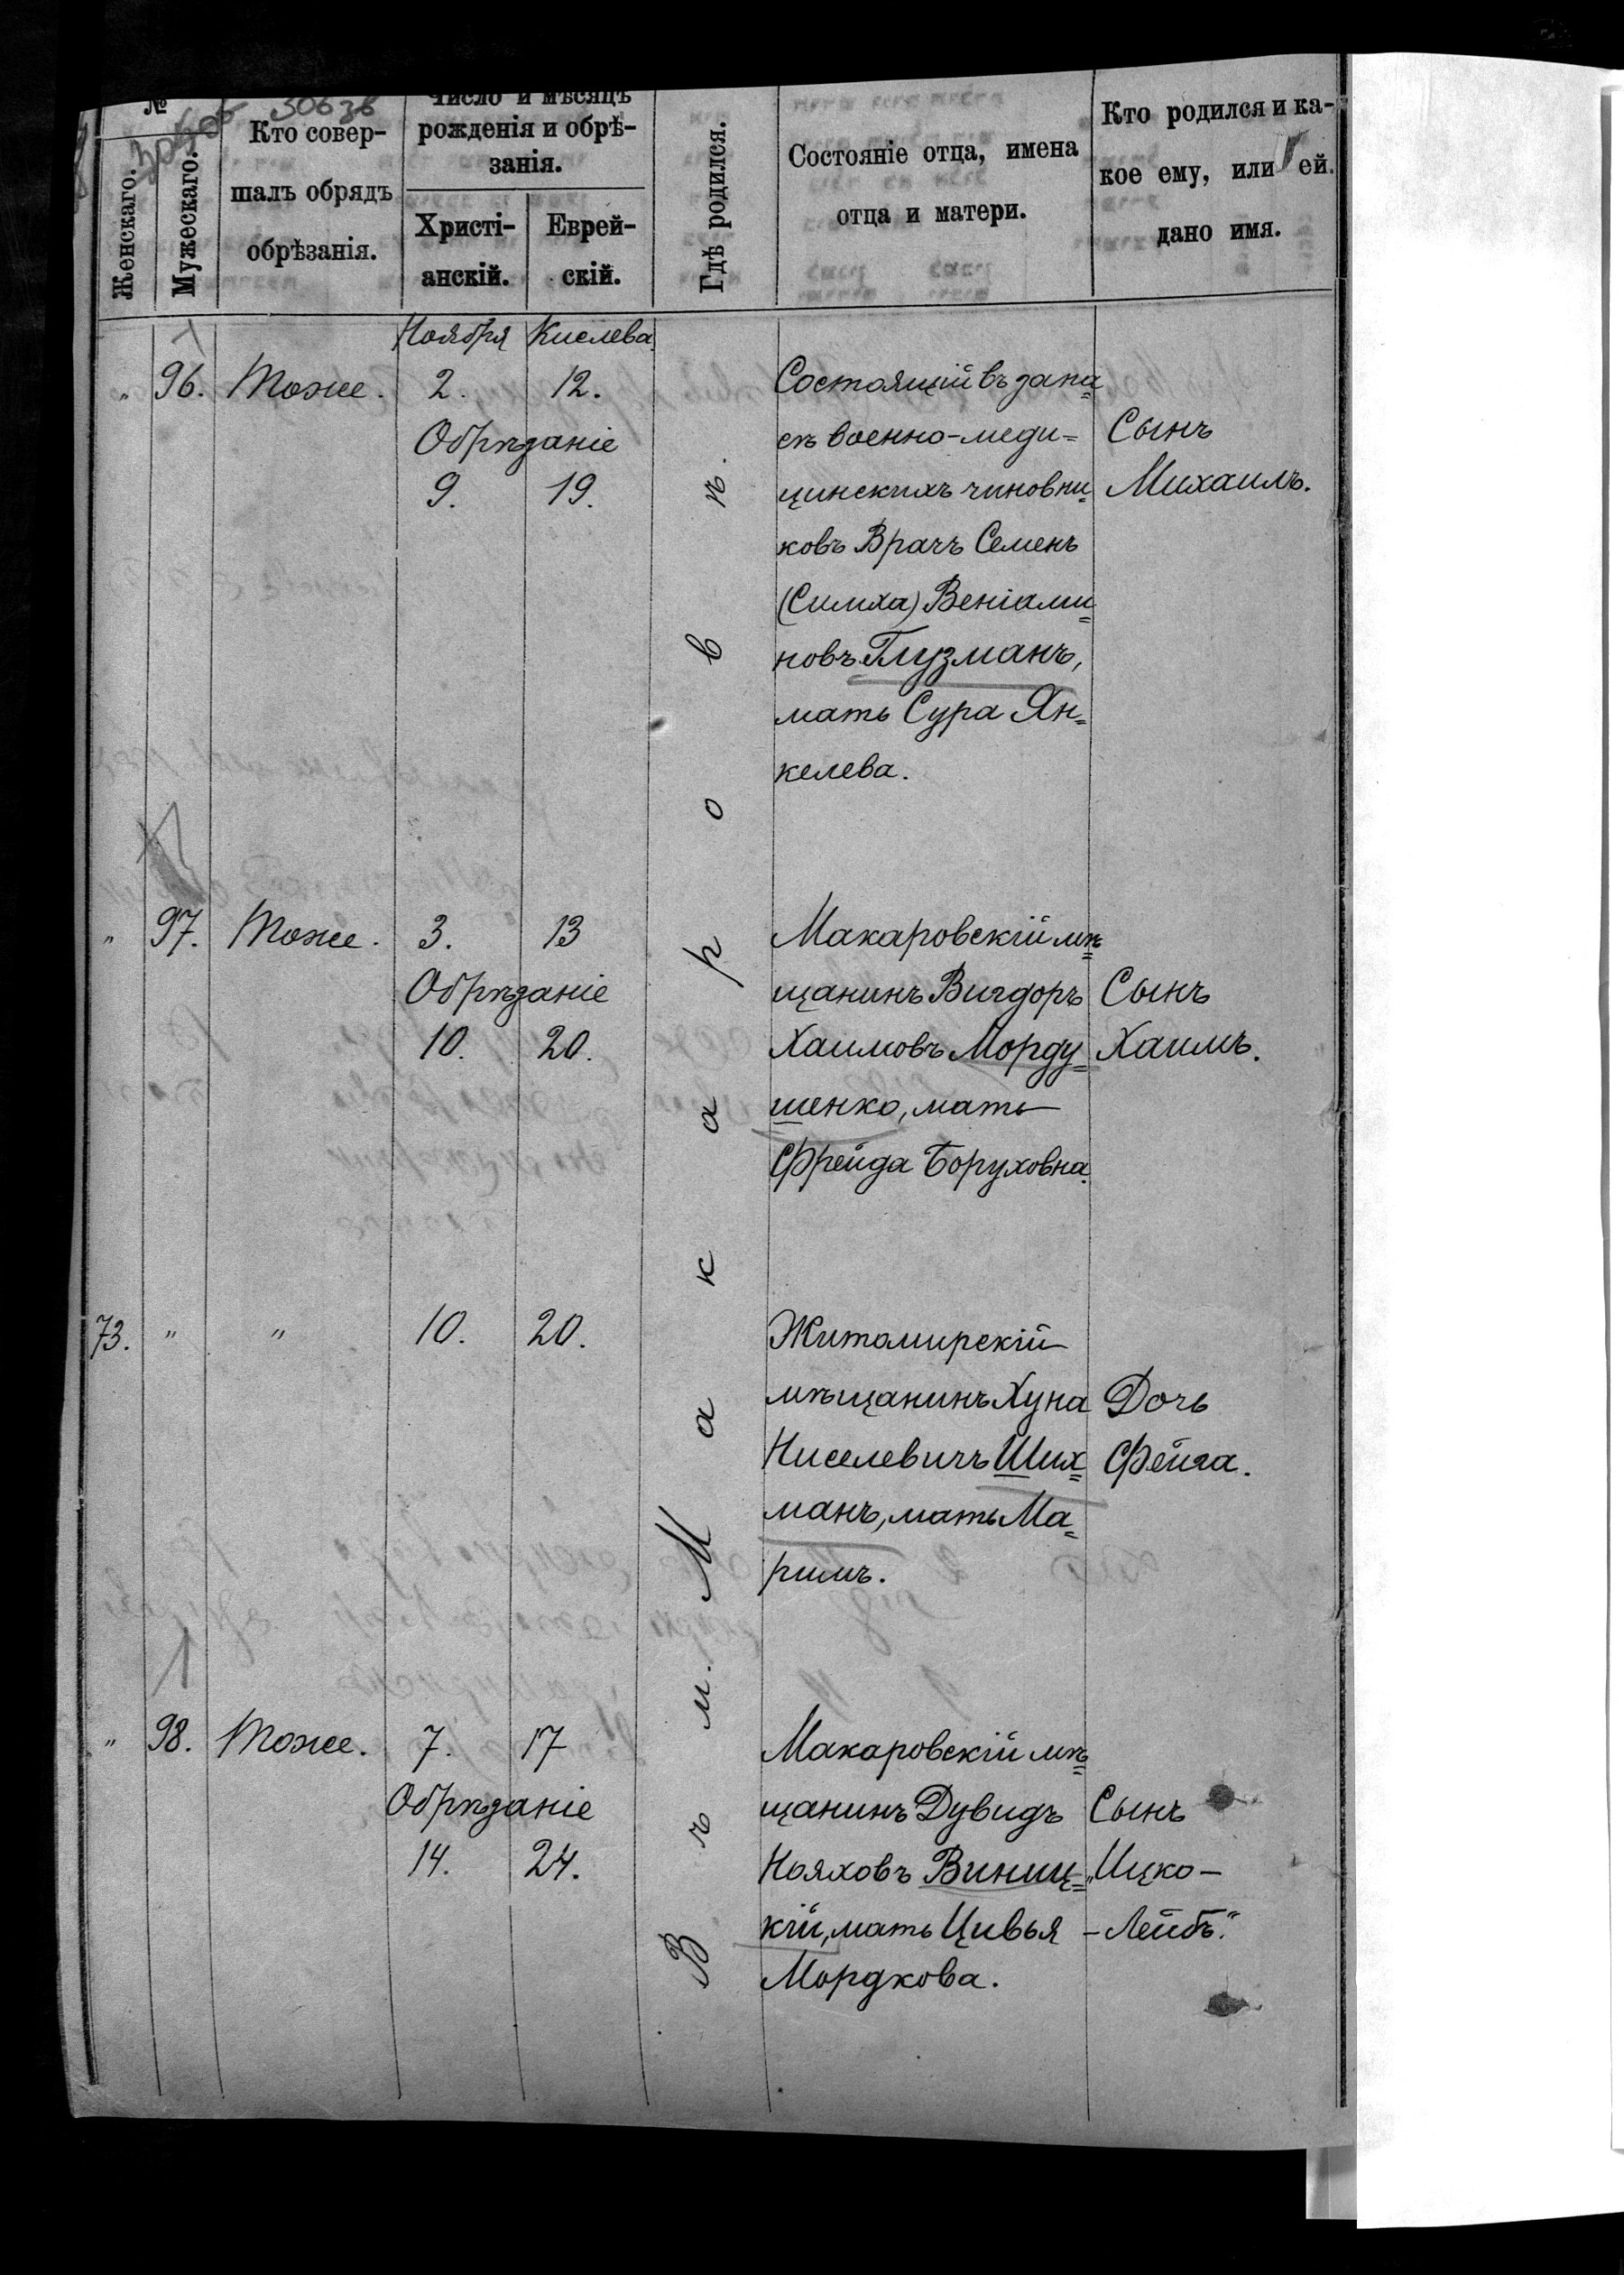 №
30636
Женскаго.
Мужескаго.
Кто совер-
шалъ обрядъ
обрѣзанія.
Число и мѣсяцъ
рожденія и обрѣ-
занія.
Христі-
анскій.
Еврей-
скій.
Гдѣ родился.
Состояніе отца, имена
отца и матери.
Кто родился и ка-
кое ему, или ей.
дано имя.
Ноября Кислева.
" 96. Тоже. 2. 12.
Обрѣзаніе
9. 19.
Состоящій въ запа=
сѣ военно-меди=
цинскихъ чиновни=
ковъ Врачъ Семенъ
(Симха) Веніами=
новъ Глузманъ,
мать Сура Ян=
келева.
Сынъ
Михаилъ.
" 97. Тоже. 3. 13
Обрѣзаніе
10. 20.
Макаровскій мѣ=
щанинъ Вигдоръ
Хаимовъ Морду=
шенко, мать
Фрейда Боруховна.
Сынъ
Хаимъ.
73. " " 10. 20.
Житомирскій
мѣщанинъ Хуна
Ниселевичъ Ших=
манъ, мать Ма=
римъ.
Дочь
Фейга.
" 98. Тоже. 7. 17
Обрѣзаніе
14. 24.
Макаровскій мѣ=
щанинъ Дувидъ
Нояховъ Виниц=
кій, мать Цивья
Мордкова.
Сынъ
"Ицко-
-Лейбъ."
Въ м. Макаровѣ.